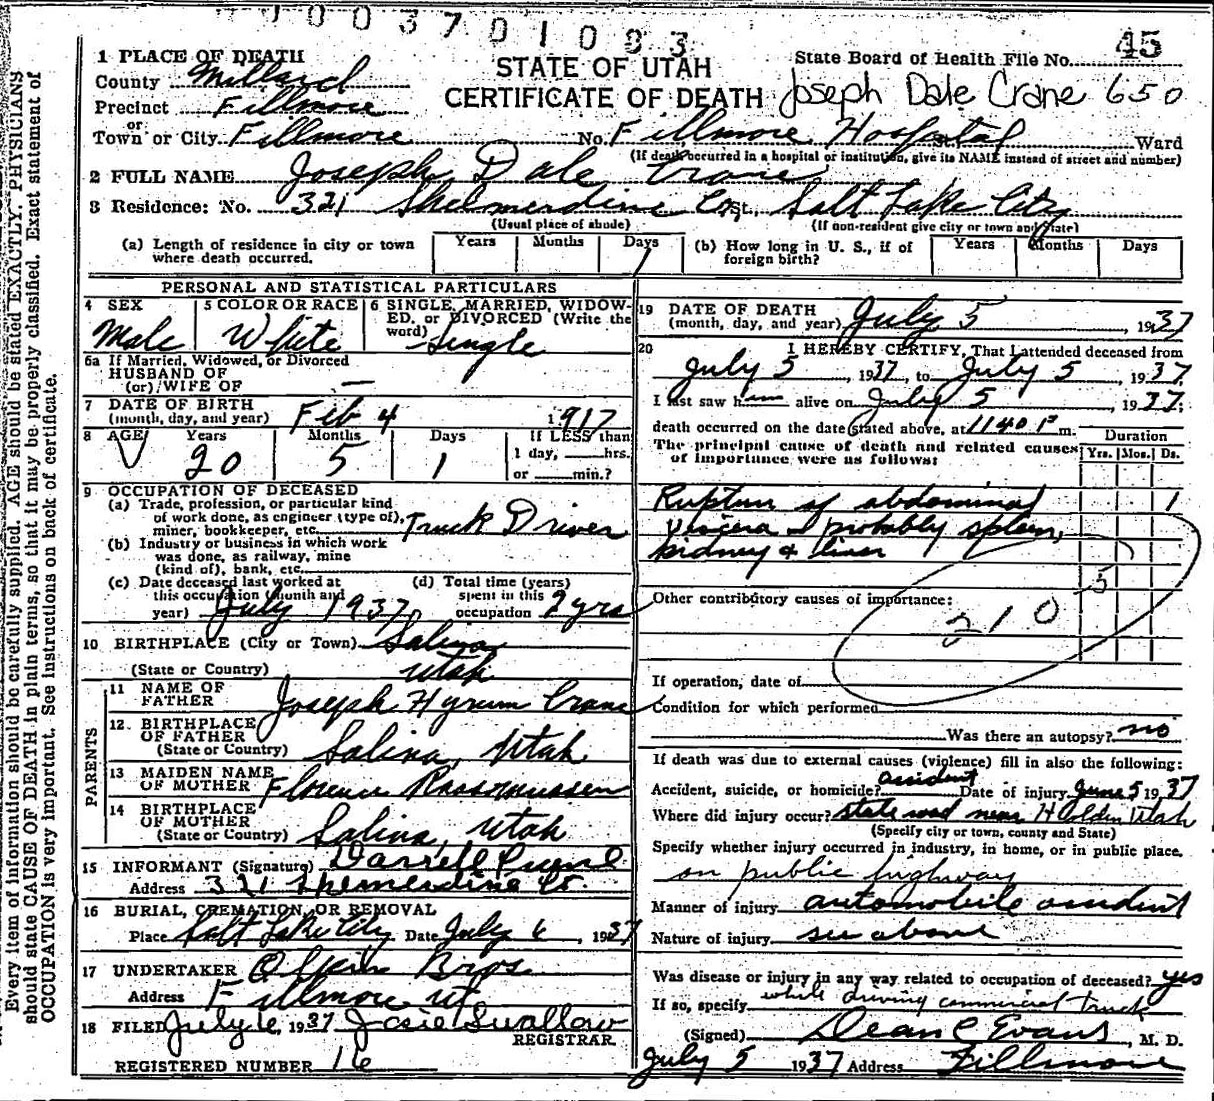 0003701083
45
1 PLACE OF DEATH
County Millard
Precinct Fillmore
or
Town or City Fillmore No. Fillmore Hospital St. Ward
(If death occurred in a hospital or institution, give its NAME instead of street and number)
STATE OF UTAH
CERTIFICATE OF DEATH
State Board of Health File No.
Joseph Dale Crane 650
2 FULL NAME Joseph Dale Crane
3 Residence: No. 321 Shelmerdine Court, Salt Lake City
(Usual place of abode) (If non-resident give city or town and State)
(a) Length of residence in city or town where death occurred. Years Months Days 1
(b) How long in U. S., if of foreign birth? Years Months Days
PERSONAL AND STATISTICAL PARTICULARS
4 SEX Male
5 COLOR OR RACE White
6 SINGLE, MARRIED, WIDOWED, or DIVORCED (Write the word) Single
6a If Married, Widowed, or Divorced
HUSBAND OF
(or) WIFE OF —
7 DATE OF BIRTH
(month, day, and year) Feb 4 1917
8 AGE Years 20 Months 5 Days 1 If LESS than 1 day, hrs. or min.?
9 OCCUPATION OF DECEASED
(a) Trade, profession, or particular kind of work done, as engineer (type of), miner, bookkeeper, etc. Truck Driver
(b) Industry or business in which work was done, as railway, mine (kind of), bank, etc.
(c) Date deceased last worked at this occupation (month and year) July 1937
(d) Total time (years) spent in this occupation 2 yrs
10 BIRTHPLACE (City or Town) Salina
(State or Country) Utah
PARENTS
11 NAME OF FATHER Joseph Hyrum Crane
12 BIRTHPLACE OF FATHER
(State or Country) Salina, Utah
13 MAIDEN NAME OF MOTHER Florence Rasmussen
14 BIRTHPLACE OF MOTHER
(State or Country) Salina, Utah
15 INFORMANT (Signature) Darrell
Address 321 Ct.
16 BURIAL, CREMATION, OR REMOVAL
Place Salt Lake City Date July 6, 1937
17 UNDERTAKER Olpin Bros
Address Fillmore Ut
18 FILED July 6, 1937 Josie Swallow
REGISTRAR
REGISTERED NUMBER 16
19 DATE OF DEATH
(month, day, and year) July 5, 1937
20 I HEREBY CERTIFY, That I attended deceased from
July 5, 1937, to July 5, 1937.
I last saw him alive on July 5, 1937;
death occurred on the date stated above, at 1140 P m.
The principal cause of death and related causes of importance were as follows: Duration Yrs. Mos. Ds.
Rupture of abdominal 1
viscera - probably spleen,
kidney & liver
5
Other contributory causes of importance:
210
If operation, date of
Condition for which performed
Was there an autopsy? no
If death was due to external causes (violence) fill in also the following:
Accident, suicide, or homicide? accident Date of injury June 5 1937
Where did injury occur? state road near Holden Utah
(Specify city or town, county and State)
Specify whether injury occurred in industry, in home, or in public place.
on public highway
Manner of injury automobile accident
Nature of injury see above
Was disease or injury in any way related to occupation of deceased? yes
If so, specify while driving commercial truck
(Signed) Dean C Evans, M. D.
July 5 1937 Address Fillmore
Every item of information should be carefully supplied. AGE should be stated EXACTLY. PHYSICIANS
should state CAUSE OF DEATH in plain terms, so that it may be properly classified. Exact statement of
OCCUPATION is very important. See instructions on back of certificate.